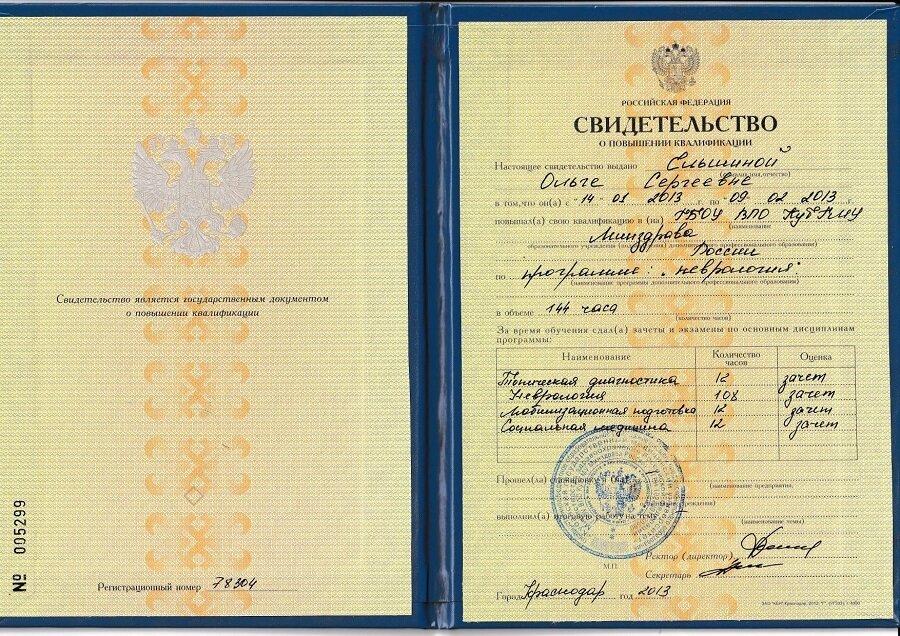 Свидетельство является государственным документом
о повышении квалификации
№ 005299
Регистрационный номер 78304
РОССИЙСКАЯ ФЕДЕРАЦИЯ
СВИДЕТЕЛЬСТВО
О ПОВЫШЕНИИ КВАЛИФИКАЦИИ
Настоящее свидетельство выдано
(фамилия, имя, отчество)
Ольге Сергеевне
в том, что он(а) с 14 01 2013 г. по 09 02 2013 г.
повышал(а) свою квалификацию в (на) ГБОУ ВПО КубГМУ
(наименование
Минздрава
образовательного учреждения (подразделения) дополнительного профессионального образования)
России
по программе: "неврология".
(наименование программы дополнительного профессионального образования)
в объеме 144 часа
(количество часов)
За время обучения сдал(а) зачеты и экзамены по основным дисциплинам
программы:
Наименование Количество часов Оценка
Топическая диагностика 12 зачет
Неврология 108 зачет
Мобилизационная подготовка 12 зачет
Социальная медицина 12 зачет
Прошел(ла) стажировку в (на)
(наименование предприятия,
учреждения)
выполнил(а) итоговую работу на тему
(наименование темы)
Ректор (директор)
Секретарь
М.П.
Город Краснодар год 2013